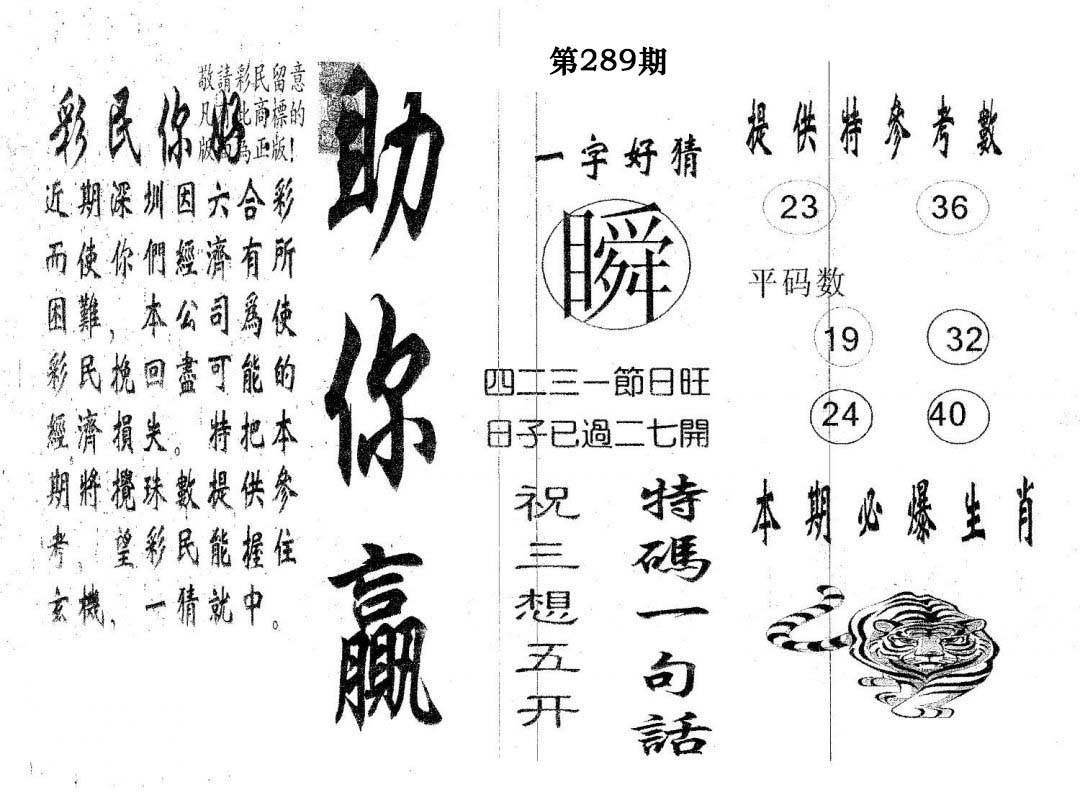 第289期
敬請彩民留意
凡 此商標的
版 為正版!
彩民你好
近期深圳因六合彩
而使你們經濟有所
困難，本公司爲使
彩民挽回盡可能的
經濟損失。特把本
期將攪珠數提供參
考，望彩民能握住
玄機，一猜就中。
助你贏
一字好猜
瞬
四二三一節日旺
日子已過二七開
特碼一句話
祝三想五开
提供特參考數
23 36
平码数
19 32
24 40
本期必爆生肖